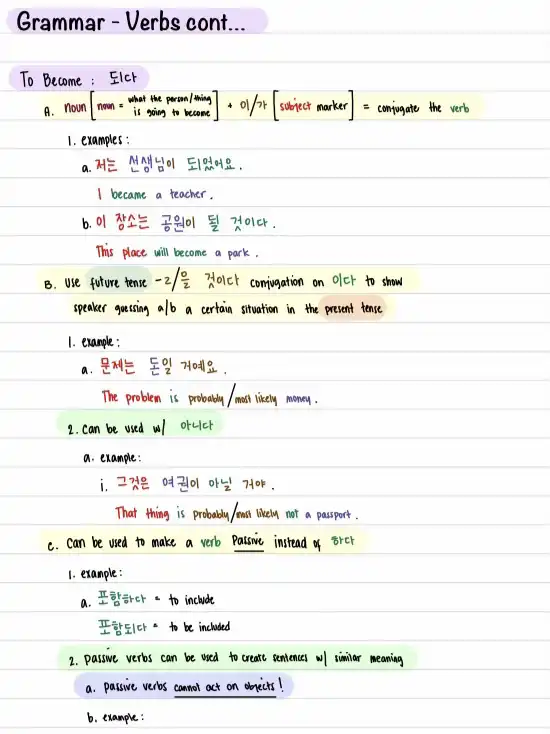 Grammar - Verbs cont...
To Become : 되다
A. noun [noun = what the person/thing is going to become] + 이/가 [subject marker] = conjugate the verb
1. examples:
a. 저는 선생님이 되었어요.
I became a teacher.
b. 이 장소는 공원이 될 것이다.
This place will become a park.
B. use future tense -ㄹ/을 것이다 conjugation on 이다 to show
speaker guessing a/b a certain situation in the present tense
1. example:
a. 문제는 돈일 거예요.
The problem is probably/most likely money.
2. Can be used w/ 아니다
a. example:
i. 그것은 여권이 아닐 거야.
That thing is probably/most likely not a passport.
C. Can be used to make a verb passive instead of 하다
1. example:
a. 포함하다 = to include
포함되다 = to be included
2. passive verbs can be used to create sentences w/ similar meaning
a. passive verbs cannot act on objects!
b. example: